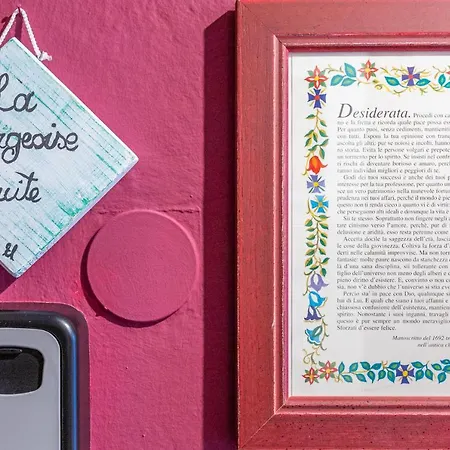 La
uite
Desiderata. Procedi con ca
no e la fretta e ricorda quale pace possa es
Per quanto puoi, senza cedimenti, mantieniti
con tutti. Esponi la tua opinione con tranq
ascolta gli altri; pur se noiosi e incolti, hanno
ria storia. Evita le persone volgari e prepote
un tormento per lo spirito. Se insisti nel conf
ti rischi di diventare borioso e amaro, perché
ranno individui migliori e peggiori di te.
Godi dei tuoi successi e anche dei tuoi p
interesse per la tua professione, per quanto un
sce un vero patrimonio nella mutevole fortuna
prudenza nei tuoi affari, perché il mondo è pie
questo non ti renda cieco a quanto vi è di virtù
che perseguono alti ideali e dovunque la vita è
Sii te stesso. Soprattutto non fingere negli
cinismo verso l'amore, perché, pur di
delusione e aridità, esso resta perenne come
Accetta docile la saggezza dell'età, lascia
le cose della giovinezza. Coltiva la forza d'
derti nelle calamità improvvise. Ma non torm
fantasie: molte paure nascono da stanchezza
là d'una sana disciplina, sii tollerante con
dell'universo non meno degli alberi e
pieno diritto d'esistere. E, convinto o non
non v'è dubbio che l'universo si stia evo
Perciò sta' in pace con Dio, qualunque
bia di Lui. E quali che siano i tuoi affanni e
chiassosa confusione dell'esistenza, mantien
spirito. Nonostante i suoi inganni, travagli
questo è pur sempre un mondo meraviglios
Sforzati d'essere felice.
Manoscritto del 1692 tro
nell'antica ch